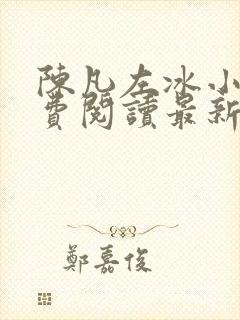 陳凡左冰小
費閱讀最新
鄭嘉俊